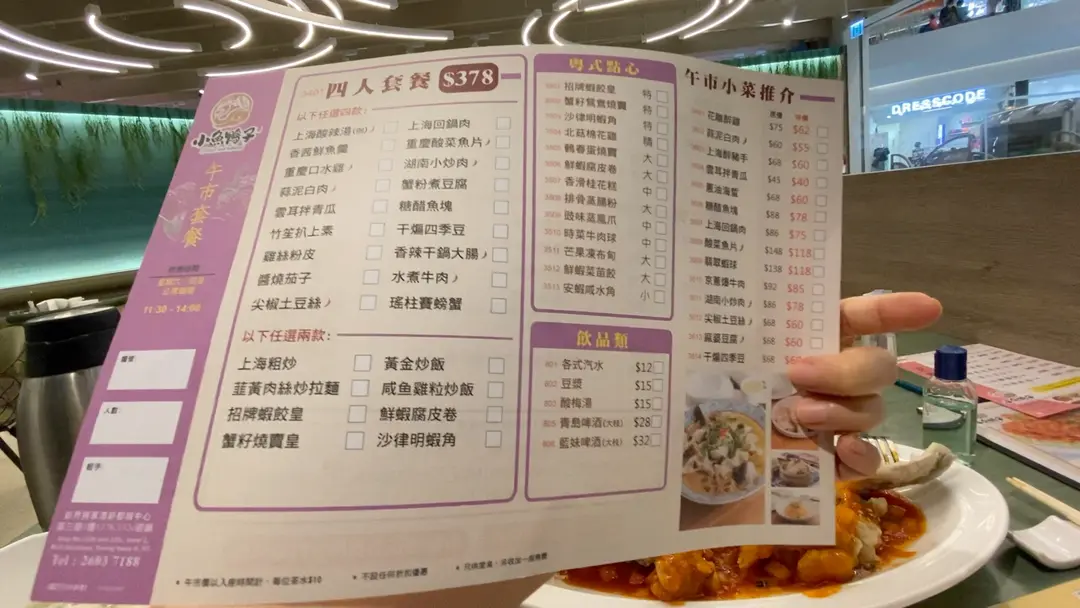 小魚鴨子
午市套餐
11:30 - 14:00
檯號:
人數:
經手:
Tel : 2603 7188
四人套餐 $378
以下任選四款:
上海酸辣湯(例)
香茜鮮魚羹
重慶口水雞
蒜泥白肉
雲耳拌青瓜
竹笙扒上素
雞絲粉皮
醬燒茄子
尖椒土豆絲
上海回鍋肉
重慶酸菜魚片
湖南小炒肉
蟹粉煮豆腐
糖醋魚塊
干煸四季豆
香辣干鍋大腸
水煮牛肉
瑤柱賽螃蟹
以下任選兩款:
上海粗炒
韮黃肉絲炒拉麵
招牌蝦餃皇
蟹籽燒賣皇
黃金炒飯
咸魚雞粒炒飯
鮮蝦腐皮卷
沙律明蝦角
粵式點心
招牌蝦餃皇 特
蟹籽鴛鴦燒賣 特
沙律明蝦角 特
北菇棉花雞
鵪春蛋燒賣 大
鮮蝦腐皮卷 大
香滑桂花糕 中
排骨蒸腸粉 大
豉味蒸鳳爪 中
時菜牛肉球 中
3511 芒果凍布甸 大
3512 鮮蝦菜苗餃 大
3513 安蝦咸水角 小
飲品類
801 各式汽水 $12
802 豆漿 $15
803 酸梅湯 $15
805 青島啤酒(大枝) $28
806 藍妹啤酒(大枝) $32
午市小菜推介
原價 特價
花雕醉雞 $75 $62
蒜泥白肉 $60 $55
上海醉豬手 $68 $60
雲耳拌青瓜 $45 $40
蔥油海蜇 $68 $60
糖醋魚塊 $88 $78
上海回鍋肉 $86 $75
酸菜魚片 $148 $118
翡翠蝦球 $138 $118
京蔥爆牛肉 $92 $85
湖南小炒肉 $86 $78
尖椒土豆絲 $68 $60
麻婆豆腐 $68 $60
干煸四季豆 $68
* 午市價以入座時間計、每位茶水$10
* 不設任何折扣優惠
DRESSCODE